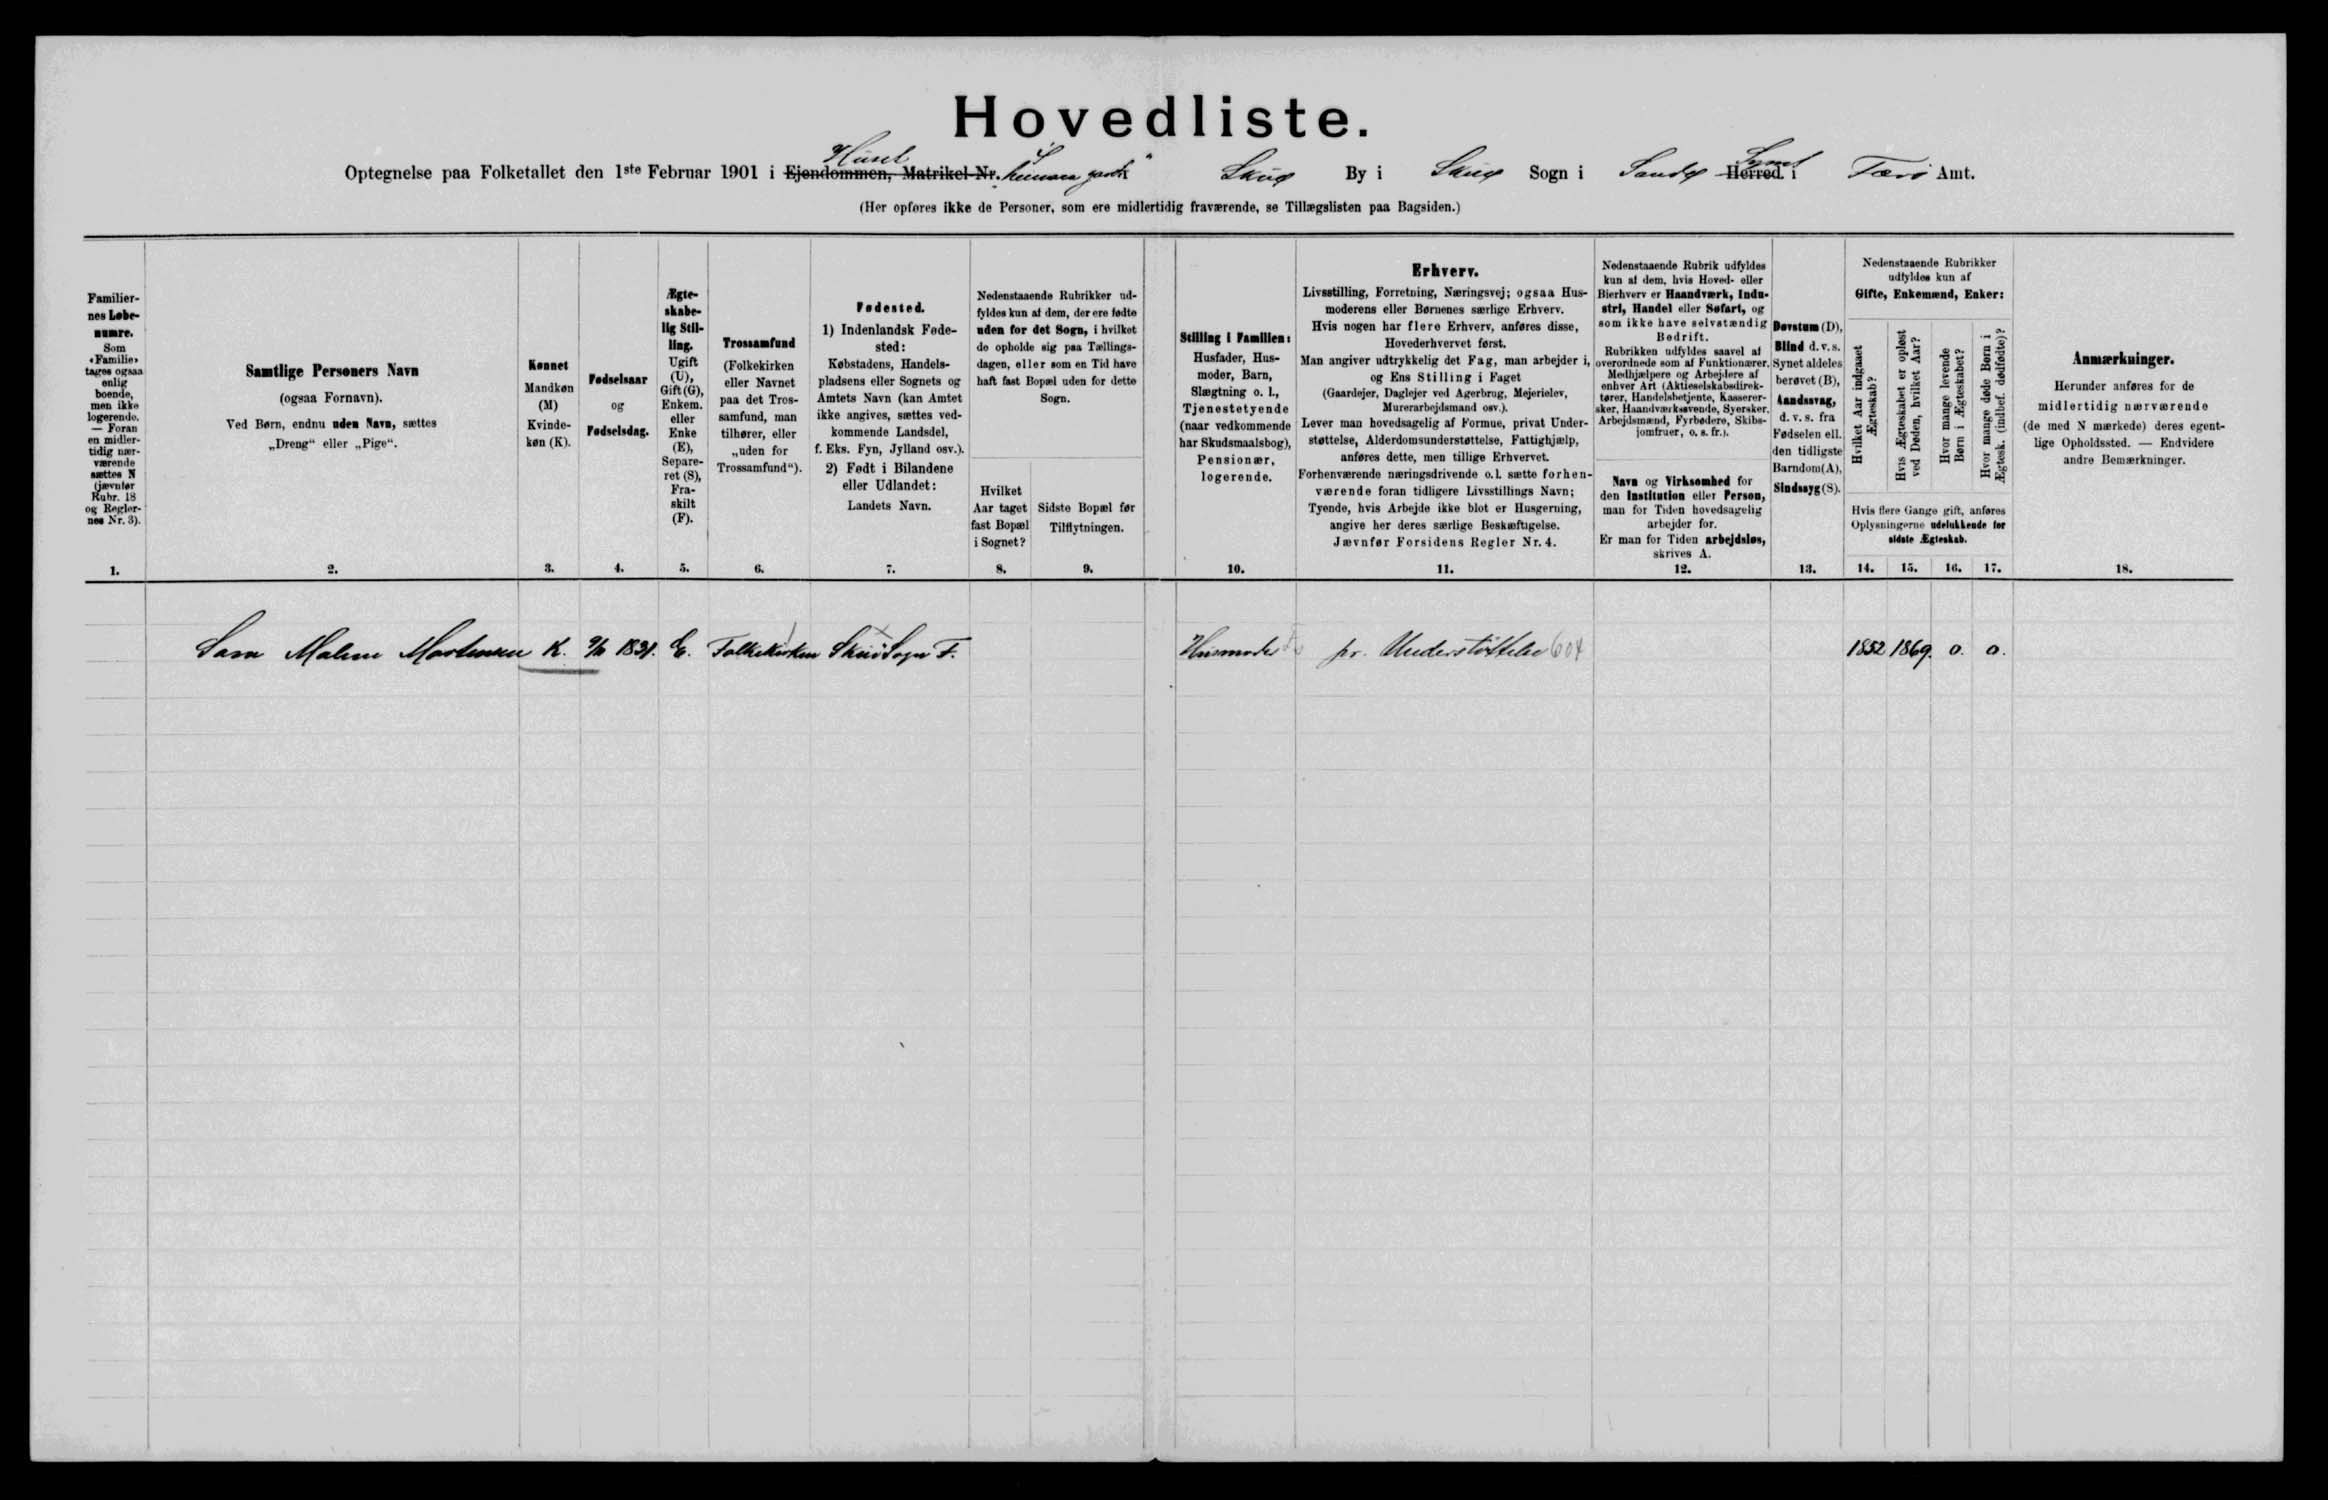 Hovedliste.
Huset Syssel
Optegnelse paa Folketallet den 1ste Februar 1901 i Ejendommen, Matrikel-Nr. Skuø By i Skuø Sogn i Sandø Herred i Færø Amt.
(Her opføres ikke de Personer, som ere midlertidig fraværende, se Tillægslisten paa Bagsiden.)
Familier-
nes Løbe-
numre.
Som
«Familie»
tages ogsaa
enlig
boende,
men ikke
logerende.
— Foran
en midler-
tidig nær-
værende
sættes N
(jævnfør
Rubr. 18
og Regler-
nes Nr. 3).
1.
Samtlige Personers Navn
(ogsaa Fornavn).
Ved Børn, endnu uden Navn, sættes
„Dreng“ eller „Pige“.
2.
Kønnet
Mandkøn
(M)
Kvinde-
køn (K).
3.
Fødselsaar
og
Fødselsdag.
4.
Ægte-
skabe-
lig Stil-
ling.
Ugift
(U),
Gift (G),
Enkem.
eller
Enke
(E),
Separe-
ret (S),
Fra-
skilt
(F).
5.
Trossamfund
(Folkekirken
eller Navnet
paa det Tros-
samfund, man
tilhører, eller
„uden for
Trossamfund“).
6.
Fødested.
1) Indenlandsk Føde-
sted:
Købstadens, Handels-
pladsens eller Sognets og
Amtets Navn (kan Amtet
ikke angives, sættes ved-
kommende Landsdel,
f. Eks. Fyn, Jylland osv.).
2) Født i Bilandene
eller Udlandet:
Landets Navn.
7.
Nedenstaaende Rubrikker ud-
fyldes kun af dem, der ere fødte
uden for det Sogn, i hvilket
de opholde sig paa Tællings-
dagen, eller som en Tid have
haft fast Bopæl uden for dette
Sogn.
Hvilket
Aar taget
fast Bopæl
i Sognet?
8.
Sidste Bopæl før
Tilflytningen.
9.
Stilling i Familien:
Husfader, Hus-
moder, Barn,
Slægtning o. l.,
Tjenestetyende
(naar vedkommende
har Skudsmaalsbog),
Pensionær,
logerende.
10.
Erhverv.
Livsstilling, Forretning, Næringsvej; ogsaa Hus-
moderens eller Børnenes særlige Erhverv.
Hvis nogen har flere Erhverv, anføres disse,
Hovederhvervet først.
Man angiver udtrykkelig det Fag, man arbejder i,
og Ens Stilling i Faget
(Gaardejer, Daglejer ved Agerbrug, Mejerielev,
Murerarbejdsmand osv.).
Lever man hovedsagelig af Formue, privat Under-
støttelse, Alderdomsunderstøttelse, Fattighjælp,
anføres dette, men tillige Erhvervet.
Forhenværende næringsdrivende o.l. sætte forhen-
værende foran tidligere Livsstillings Navn;
Tyende, hvis Arbejde ikke blot er Husgerning,
angive her deres særlige Beskæftigelse.
Jævnfør Forsidens Regler Nr. 4.
11.
Nedenstaaende Rubrik udfyldes
kun af dem, hvis Hoved- eller
Bierhverv er Haandværk, Indu-
stri, Handel eller Søfart, og
som ikke have selvstændig
Bedrift.
Rubrikken udfyldes saavel af
overordnede som af Funktionærer,
Medhjælpere og Arbejdere af
enhver Art (Aktieselskabsdirek-
tører, Handelsbetjente, Kasserer-
sker, Haandværkssvende, Syersker,
Arbejdsmænd, Fyrbødere, Skibs-
jomfruer, o. s. fr.).
Navn og Virksomhed for
den Institution eller Person,
man for Tiden hovedsagelig
arbejder for.
Er man for Tiden arbejdsløs,
skrives A.
12.
Døvstum (D),
Blind d. v. s.
Synet aldeles
berøvet (B),
Aandssvag,
d. v. s. fra
Fødselen ell.
den tidligste
Barndom (A),
Sindssyg (S).
13.
Nedenstaaende Rubrikker
udfyldes kun af
Gifte, Enkemænd, Enker:
Hvilket Aar indgaaet
Ægteskab?
Hvis Ægteskabet er opløst
ved Døden, hvilket Aar?
Hvor mange levende
Børn i Ægteskabet?
Hvor mange døde Børn i
Ægtesk. (indbef. dødfødte)?
Hvis flere Gange gift, anføres
Oplysningerne udelukkende for
sidste Ægteskab.
14. 15. 16. 17.
Anmærkninger.
Herunder anføres for de
midlertidig nærværende
(de med N mærkede) deres egent-
lige Opholdssted. — Endvidere
andre Bemærkninger.
18.
Sara Malene Mortensen K. 1831. E. Folkekirken Skuø Sogn F. Husmoder pr. Understøttelse 604 1852 1869. 0. 0.